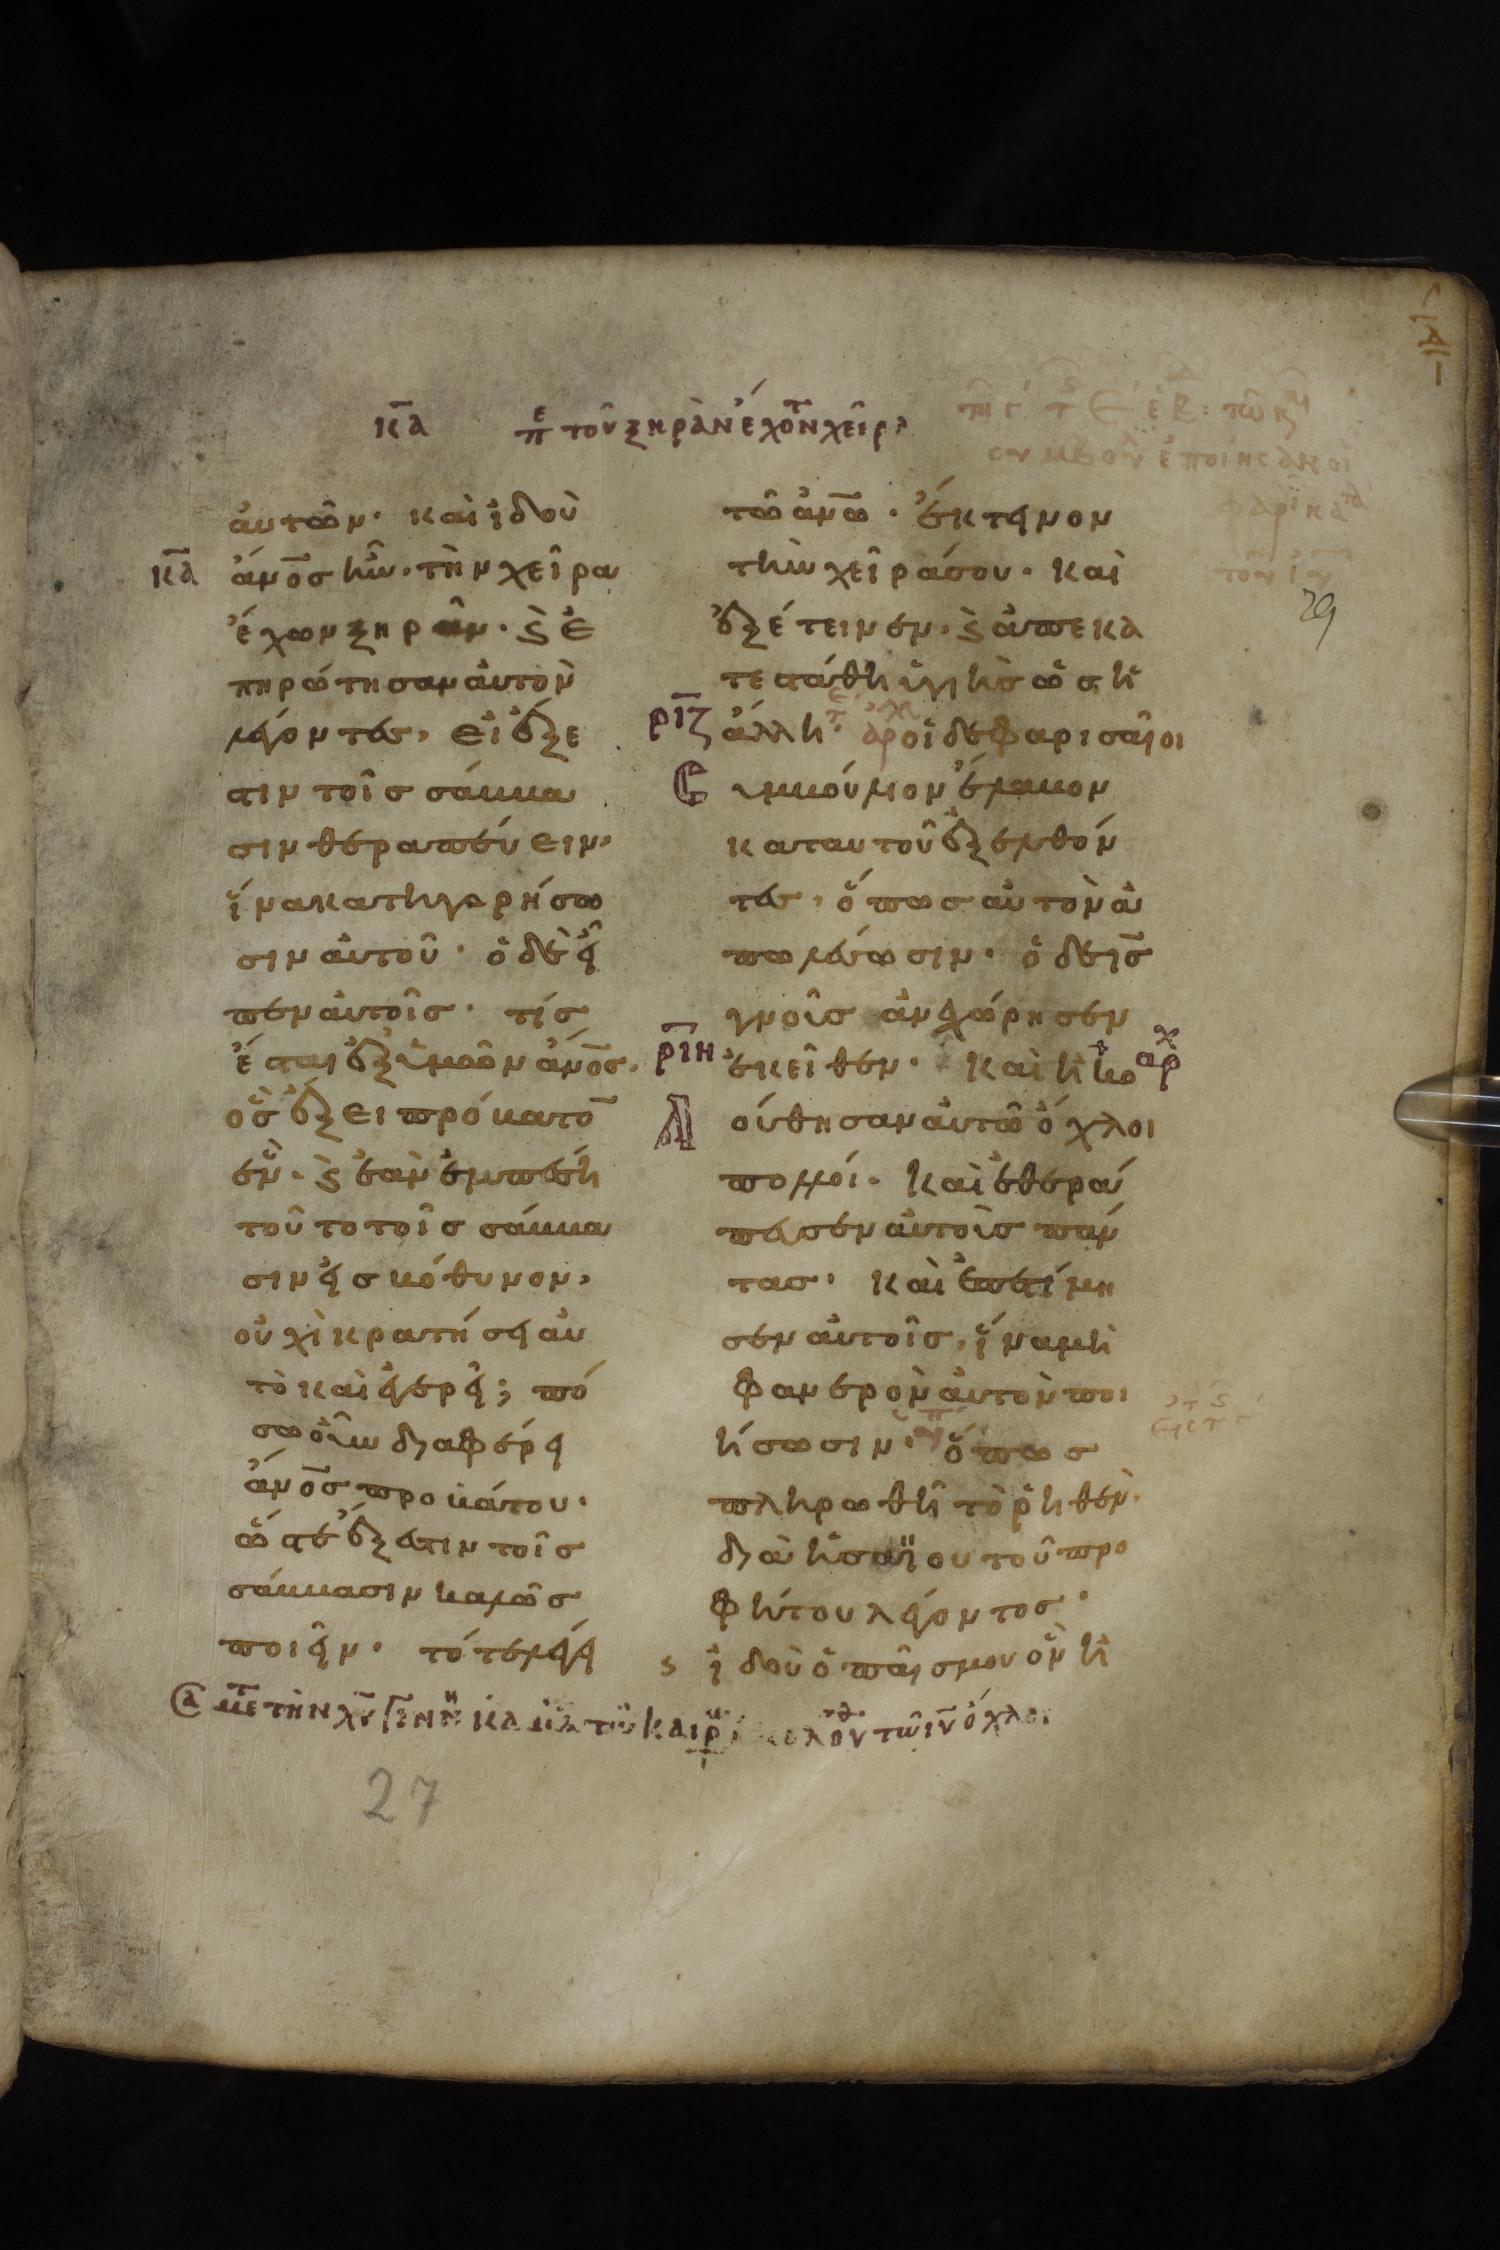 κα περὶ τοῦ ξηρὰν ἔχοντος χεῖρα
αὐτῶν· καὶ ἰδοὺ
κα
ἄνος ἦν· τὴν χεῖρα
ἔχων ξηράν· ϗ ἐ
πηρώτησαν αὐτὸν
λέγοντες, εἰ ἔξε
στιν τοῖς σάββα
σιν θεραπεύειν,
ἵνα κατηγορήσω
σιν αὐτοῦ· ὁ δὲ εἶ
πεν αὐτοῖς· τίς
ἔσται ἐξ ὑμῶν ἄνος·
ὃς ἕξει πρόβατο
ἕν· ϗ ἐὰν ἐμπέση
τοῦτο τοῖς σάββα
σιν εἰς βόθυνον,
οὐχὶ κρατήσει αὐ
τὸ καὶ ἐγερεῖ; πό
σω οὖν διαφέρει
ἄνος προβάτου·
ὥστε ἔξεστιν τοῖς
σάββασιν καλῶς
ποιεῖν· τότε λέγει
τῶ ἀνω· ἔκτεινον
τὴν χεῖρά σου· καὶ
ἐξέτεινεν· ϗ ἀπεκα
τεστάθη ὑγιὴς ὡς ἡ
ριζ
ἄλλη· αρ οἱ δὲ φαρισαῖοι
ϲυμβούλιον ἔλαβον
κατ αυτοῦ ἐξελθόν
τες, ὅπως αὐτὸν ἀ
πωλέσωσιν· ὁ δὲ ις
γνοὺς ἀνεχώρησεν
ριη
ἐκεῖθεν· Καὶ ἠκο αρχ
λούθησαν αὐτῶ ὄχλοι
πολλοί· καὶ ἐθερά
πευσεν αὐτοὺς πάν
τας· καὶ ἐπετίμη
σεν αὐτοῖς, ἵνα μὴ
φανερὸν αὐτὸν ποι
ήσωσιν· ὅπως
πληρωθῆ τὸ ῥηθὲν·
διὰ ἡσαΐου τοῦ προ
φήτου λέγοντος·
ἰδοὺ ὁ παῖς μου ὃν ἡ
29
27